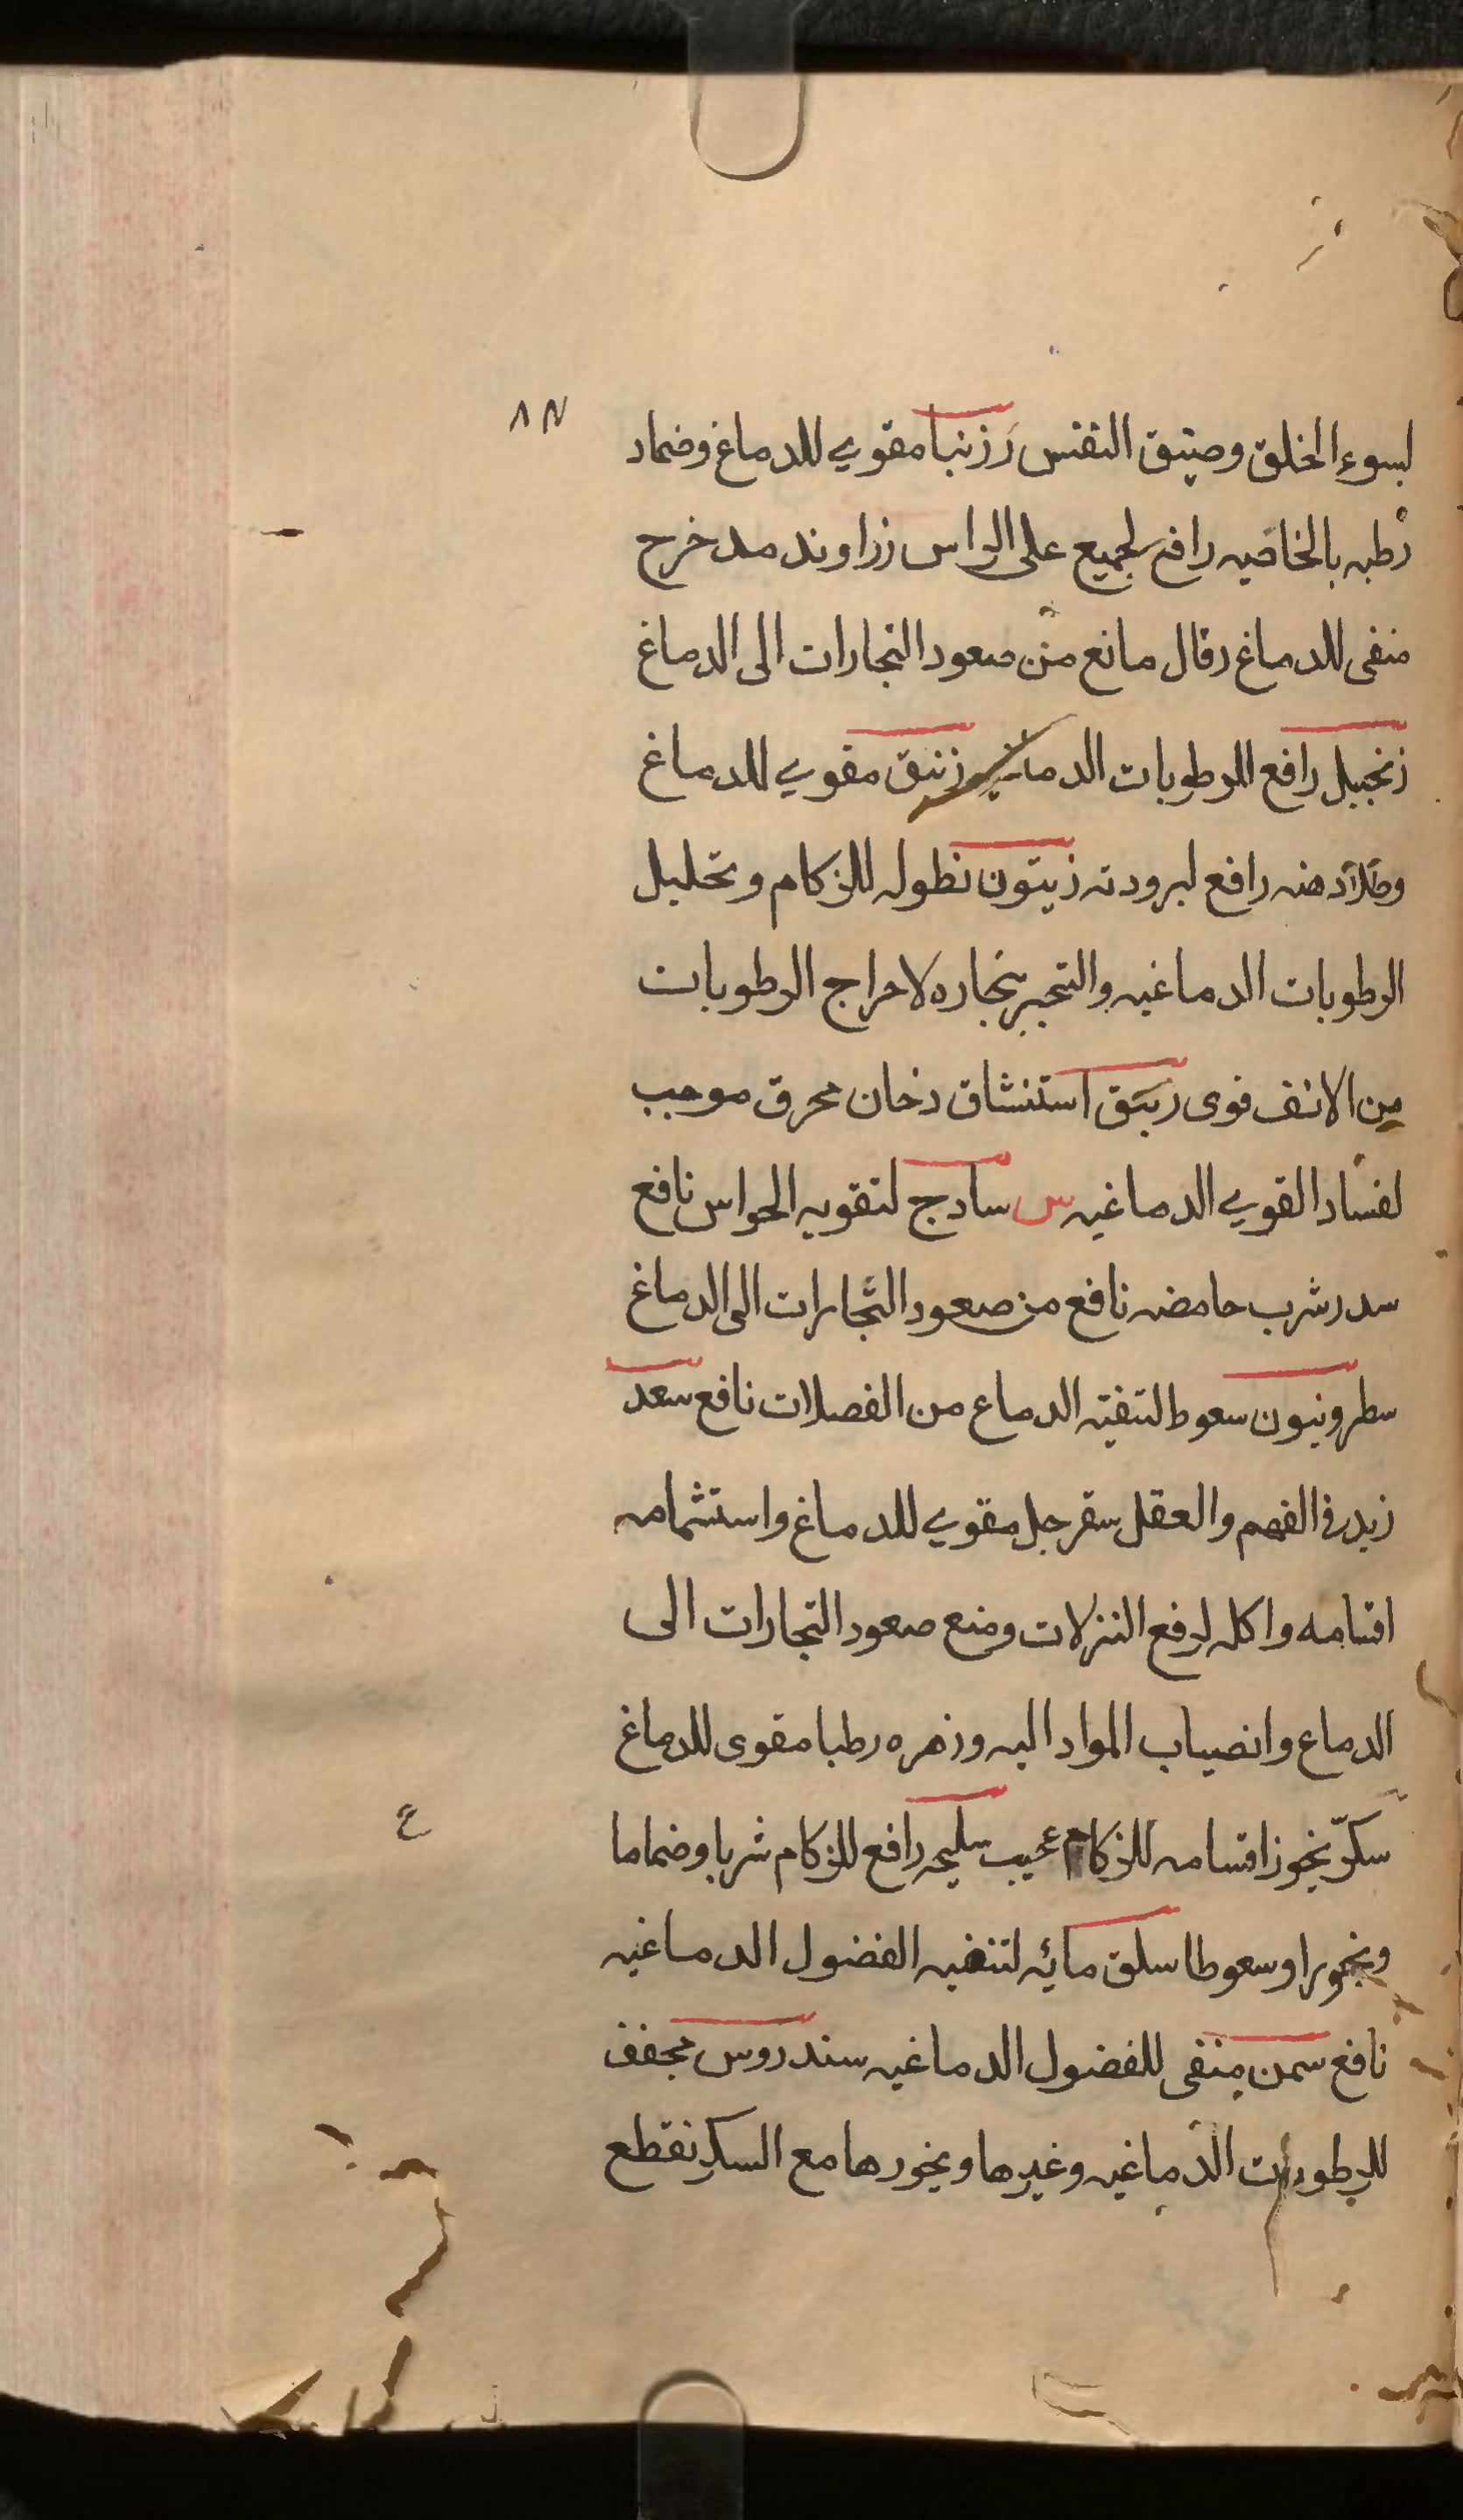 ٨٢
لسوء الخلق وضيق النفس زرنبا مقوي للدماغ وضماد
رطبه بالخاصيه رافع لجميع على الراس زراوند مدخرج
منقى للدماغ رقال مانع من صعود البخارات الى الدماغ
زنجبيل رافع للرطوبات الدماغيه زنبق مقوي للدماغ
وطلآ دهنه رافع لبرودته زيتون نطوله للزكام وتحليل
الرطوبات الدماغيه والتبخير ببخاره لاخراج الرطوبات
من الانف قوى زيبق استنشاق دخان محرق موجب
لفساد القوي الدماغيه س سادج لتقويه الحواس نافع
سدر شرب حامضه نافع من صعود البخارات الى الدماغ
سطرونيون سعوط لتنقيته الدماع من الفضلات نافع سعد
زيد في الفهم والعقل سفرجل مقوي للدماغ واستشمامه
اقسامه واكله لدفع النزلات ومنع صعود البخارات الى
الدماع وانصباب المواد اليه وزهره رطبا مقوى للدماغ
سكّر بخور اقسامه للزكام عجيب سليحه رافع للزكام شربا وضماما
ع
وبخورا وسعوطا سلق مائه لتنقيه الفضول الدماغيه
نافع سمن منقى للفضول الدماغيه سندروس مجفف
للرطوبات الدماغيه وغيرها وبخورها مع السكر نقطع